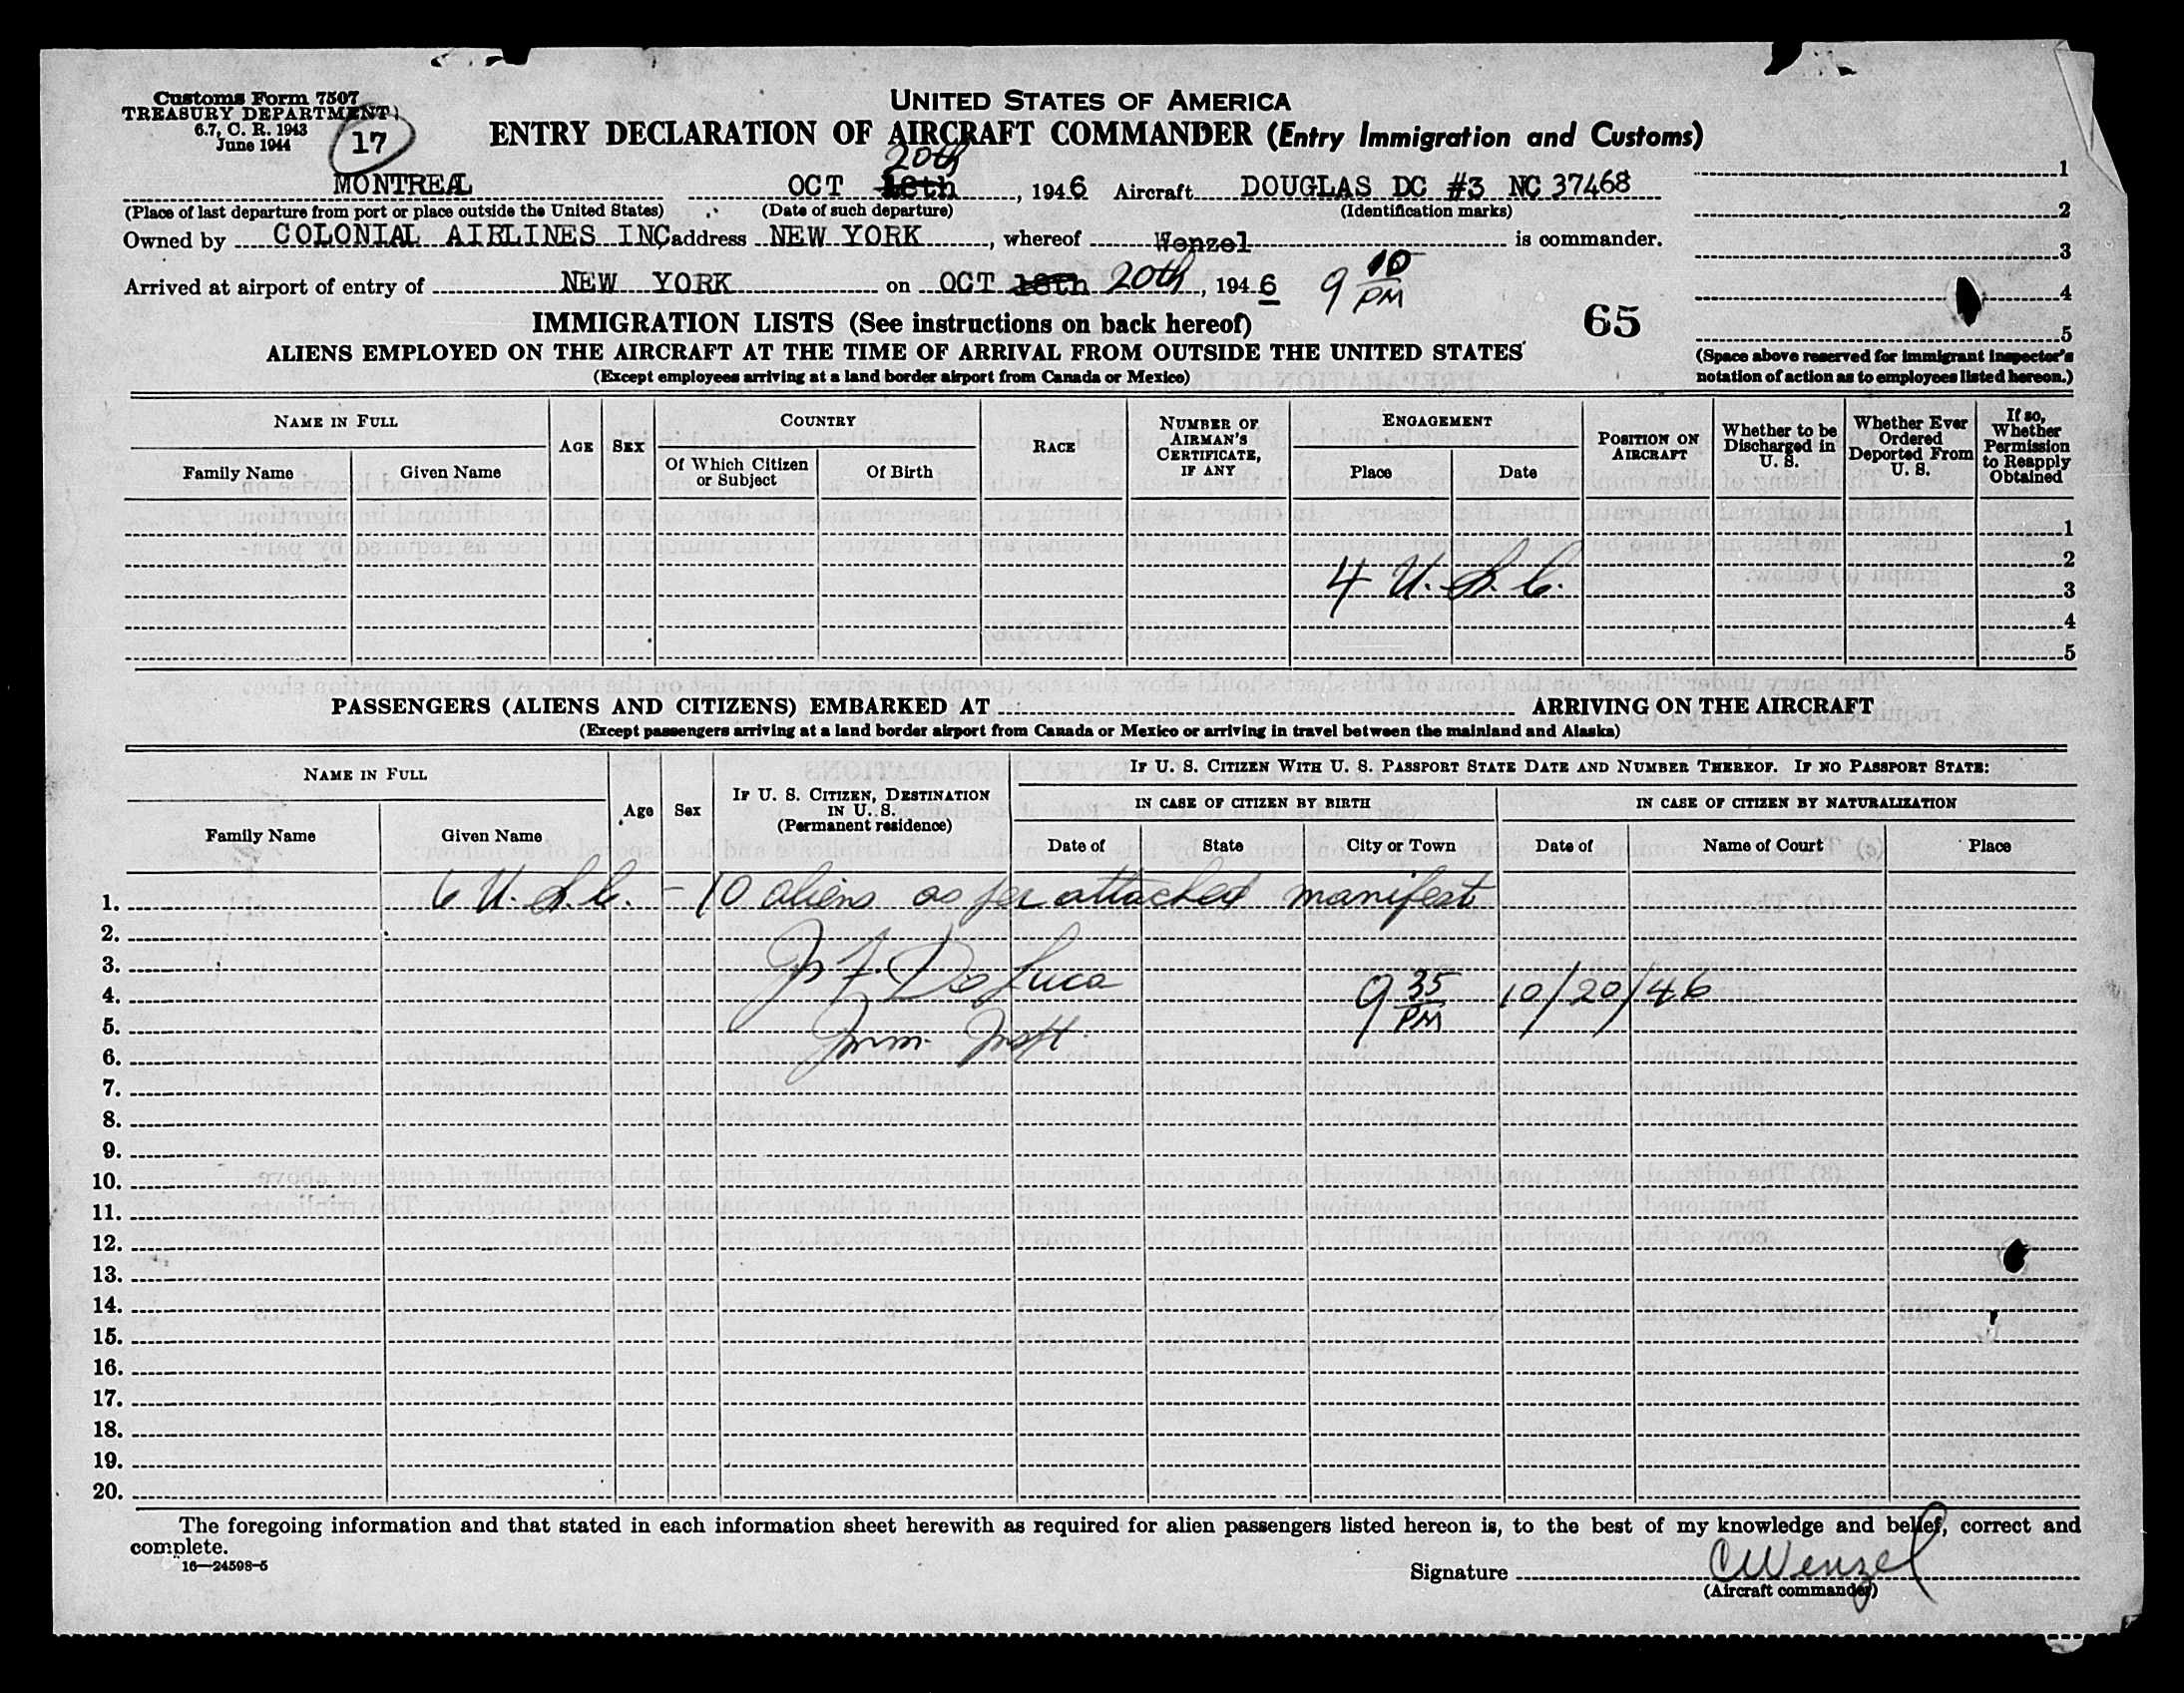 Customs Form 7507
TREASURY DEPARTMENT
6.7, C. R. 1943
June 1944
17
UNITED STATES OF AMERICA
ENTRY DECLARATION OF AIRCRAFT COMMANDER (Entry Immigration and Customs)
20th
MONTREAL OCT 18th, 1946 Aircraft DOUGLAS DC #3 NC 37468
(Place of last departure from port or place outside the United States) (Date of such departure) (Identification marks)
Owned by COLONIAL AIRLINES INC address NEW YORK, whereof Wenzel is commander.
Arrived at airport of entry of NEW YORK on OCT 18th 20th, 1946 9 10 PM
1
2
3
4
5
(Space above reserved for immigrant inspector's
notation of action as to employees listed hereon.)
IMMIGRATION LISTS (See instructions on back hereof) 65
ALIENS EMPLOYED ON THE AIRCRAFT AT THE TIME OF ARRIVAL FROM OUTSIDE THE UNITED STATES
(Except employees arriving at a land border airport from Canada or Mexico)
NAME IN FULL
Family Name Given Name
AGE SEX
COUNTRY
Of Which Citizen or Subject Of Birth
RACE
NUMBER OF AIRMAN'S CERTIFICATE, IF ANY
ENGAGEMENT
Place Date
POSITION ON AIRCRAFT
Whether to be Discharged in U. S.
Whether Ever Ordered Deported From U. S.
If so, Whether Permission to Reapply Obtained
1
2
4 U.S.C.
3
4
5
PASSENGERS (ALIENS AND CITIZENS) EMBARKED AT ARRIVING ON THE AIRCRAFT
(Except passengers arriving at a land border airport from Canada or Mexico or arriving in travel between the mainland and Alaska)
NAME IN FULL
Family Name Given Name
Age Sex
IF U. S. CITIZEN, DESTINATION IN U. S.
(Permanent residence)
IF U. S. CITIZEN WITH U. S. PASSPORT STATE DATE AND NUMBER THEREOF. IF NO PASSPORT STATE:
IN CASE OF CITIZEN BY BIRTH IN CASE OF CITIZEN BY NATURALIZATION
Date of State City or Town Date of Name of Court Place
1. 6 U.S.C. - 10 aliens as per attached manifest
2.
3. DeLuca
4. 9 35 PM 10/20/46
5.
6. Imm. Inspt.
7.
8.
9.
10.
11.
12.
13.
14.
15.
16.
17.
18.
19.
20.
The foregoing information and that stated in each information sheet herewith as required for alien passengers listed hereon is, to the best of my knowledge and belief, correct and
complete.
16—24598-5
Signature C Wenzel
(Aircraft commander)